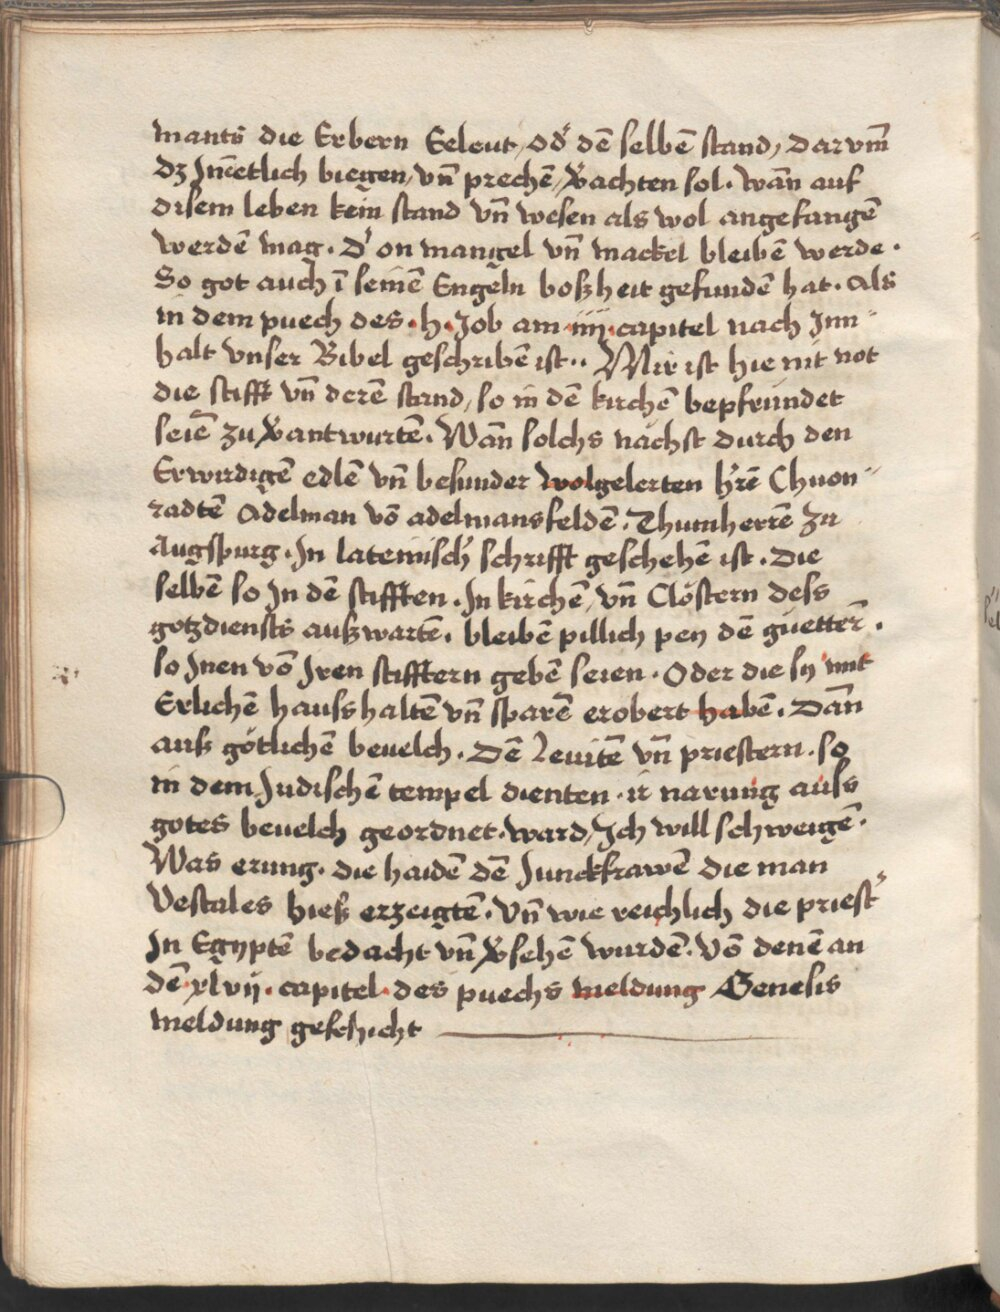 mants die Erbern Eeleut, od᷑ dē selbē stand, darvm̄
dz Jnēetlich biegen, vn̄ prechē, v̄achten sol. wān auf
disem leben kein stand vn̄ wesen als wol angefangē
werdē mag. d᷑ on mangel vn̄ mackel bleibē werde.
So got auch ī seinē Engeln boßheit gefundē hat. Als
in dem puech des .h. Job am .iiij. capitel nach Inn-
halt vnser Bibel geschribē ist.. Mir ist hie nit not
die stifft vn̄ derē stand, so in dē kirchē bepfründet
seiē zu v̄antwurtē. Wān solchs nächst durch den
Erwirdigē edlē vn̄ besunder wolgelerten h̄rē Chuon-
radtē Adelman vō adelmansfeldē. Thumherrē zu
Augspurg. In lateinisch᷑ schrifft geschehē ist. Die
selbē so Jn dē stifften. In kirchē, vn̄ Clöstern dess
gotzdiensts außwartē. bleibē pillich pey dē güetterñ.
so Jnen vō Jren stifftern gebē seien. Oder die sy mit
Erlichē hausshaltē vn̄ sparē erobert habē. Dān
auß götlichē beuelch. Dē Leuitē vn̄ priestern. so
in dem Judischē tempel dienten. ir narung auss
gotes beuelch geordnet. ward, Ich will schweigē.
Was erung. die haidē dē Junckfrawē die man
Vestales hieß erzeigtē. Vn̄ wie reichlich die priest᷑
In Egyptē bedacht vn̄ v̄sehē wurdē. Vō denē an
dē .xlvij. capitel des puechs meldung Genesis
meldung geschicht